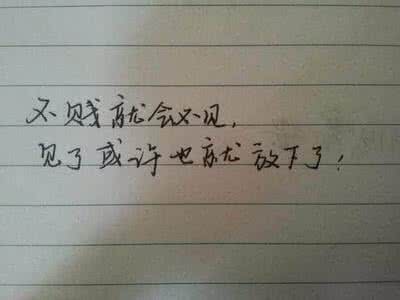 不贱就会不见,
见了或许也就放下了!